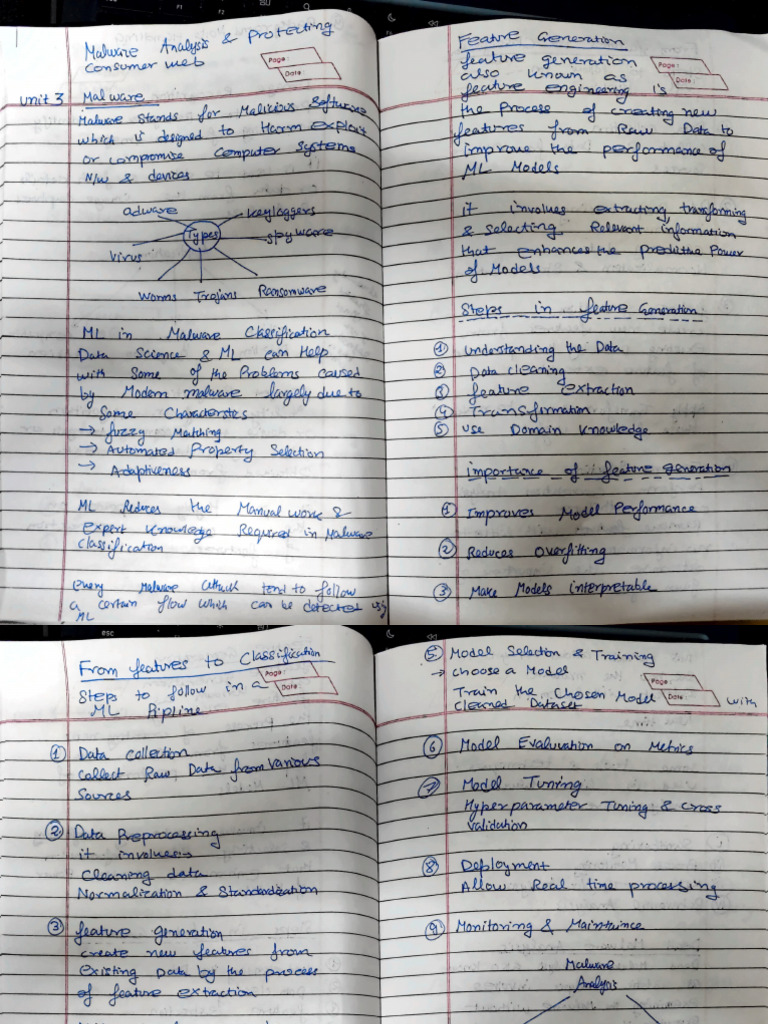 Malware Analysis & Protecting
consumer web
Page :
Date :
Unit 3 Malware
Malware stands for Malicious Software
which is designed to Harm exploit
or compromise Computer Systems
N/w & devices
adware
keylaggers
Types
spyware
Virus
Worms Trojans Ransomware
ML in Malware Classification
Data Science & ML can Help
with Some of the Problems caused
by Modern malware largely due to
Some Characterstcs
→ fuzzy Matching
→ Automated Property Selection
→ Adaptiveness
ML Reduces the Manual work &
expert knowledge Required in Malware
classification
every Malware attack tend to follow
a certain flow which can be detected using
ML
Feature Generation
Page :
Date :
feature generation
also known as
feature engineering is
the Process of creating new
features from Raw Data to
improve the performance of
ML Models
it involves extracting, transforming
& selecting Relevant information
that enhances the preditive Power
of Models
Steps in feature Generation
① understanding the Data
② Data cleaning
③ feature extraction
④ Transformation
⑤ use Domain knowledge
importance of feature generation
① Improves Model Performance
② Reduces overfitting
③ Make Models interpretable
esc
From features to Classification
Steps to follow in a
ML Pipline
Page :
Date :
① Data collection
collect Raw Data from various
Sources
② Data Preprocessing
it involves→
Cleaning data
Normalization & Standardization
③ feature generation
create new features from
existing Data by the process
of feature extraction
⑤ Model Selection & Training
→ choose a Model
Train the Chosen Model with
cleaned Dataset
Page :
Date :
⑥ Model Evaluvation on Metrics
⑦ Model Tuning
Hyperparameter Tuning & cross
validation
⑧ Deployment
Allow Real time processing
⑨ Monitoring & Maintaince
Malware
Analysis